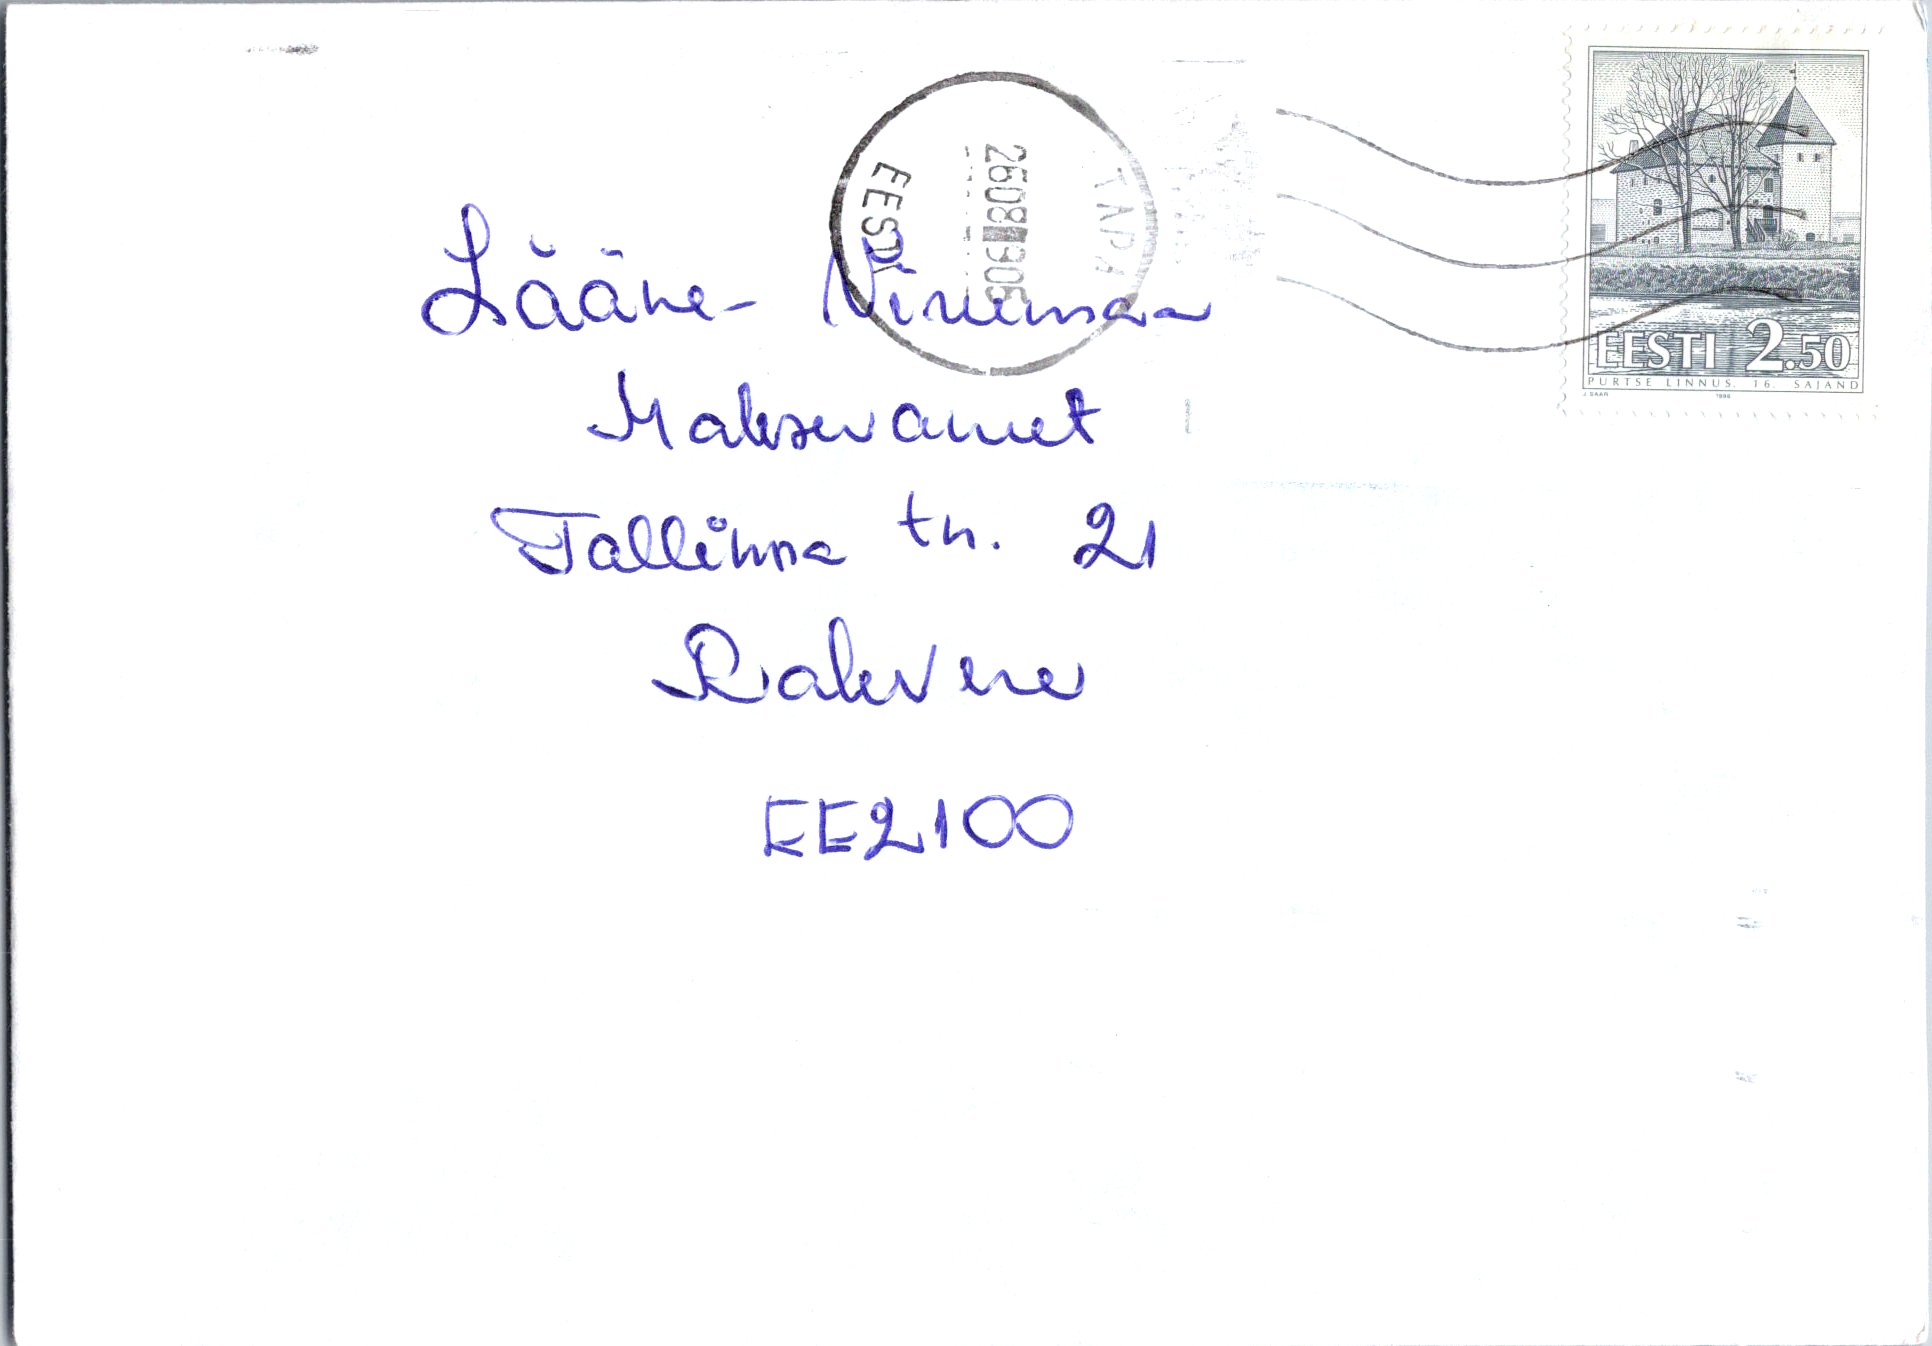 TAPA
2608 1905
EESTI
EESTI 2.50
PURTSE LINNUS. 16. SAJAND
J. SAAR 1996
Lääne-Virumaa
Maksuamet
Tallinna tn. 21
Rakvere
EE2100